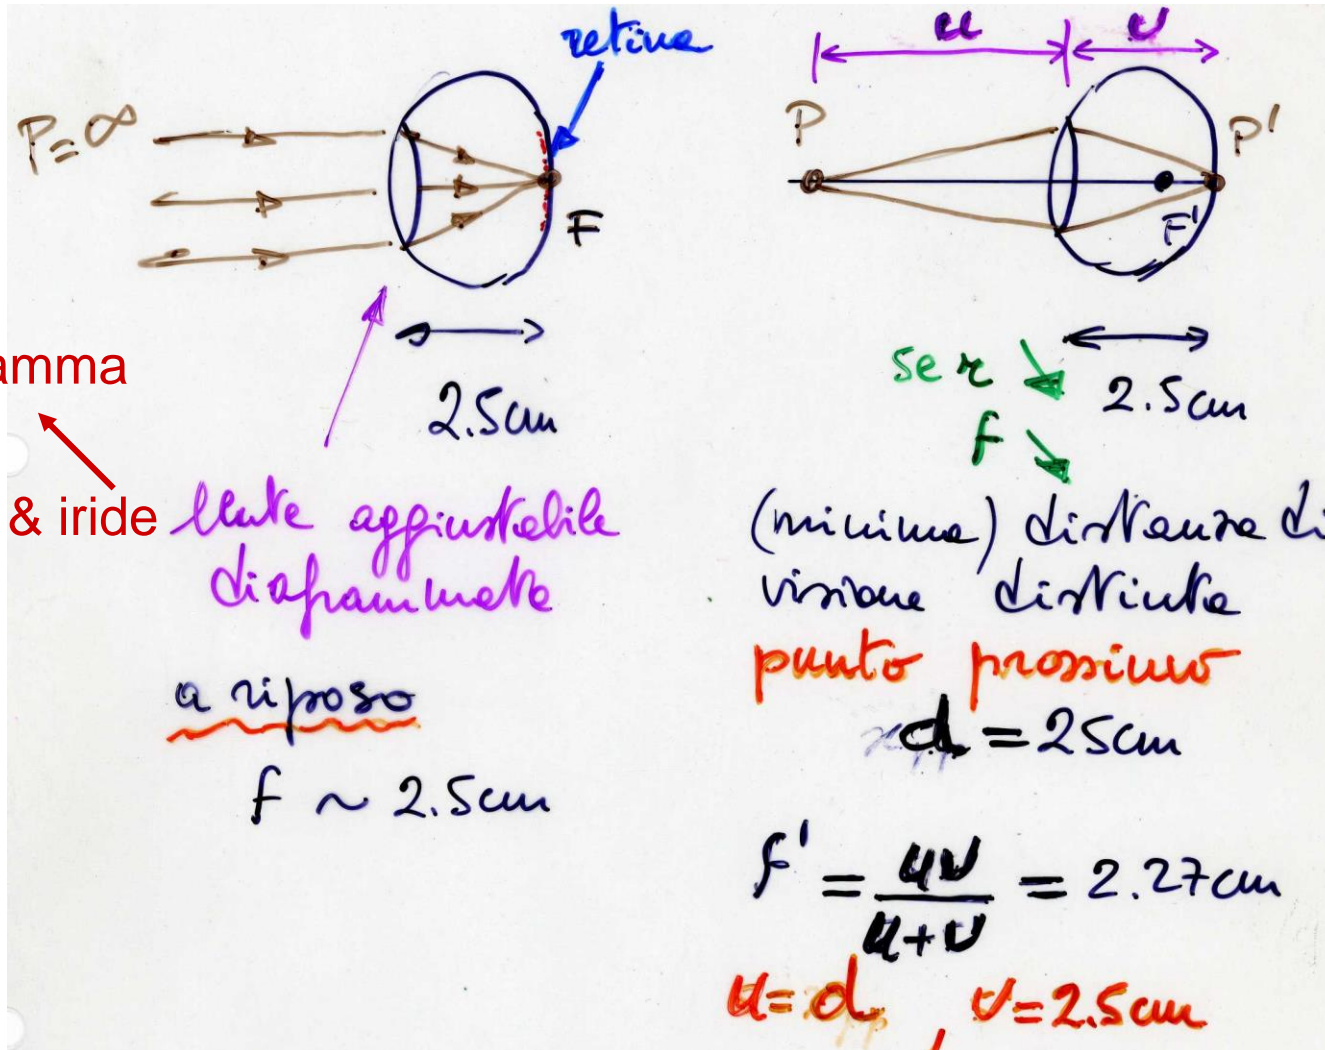 retina
P=∞
F
2.5cm
amma
& iride
lente aggiustabile
diaframmata
a riposo
f ~ 2.5cm
u v
P
P'
F'
2.5cm
se r ↘
f ↘
(minima) distanza di
visione distinta
punto prossimo
d = 25cm
f' = uv/u+v = 2.27cm
u=d v=2.5cm